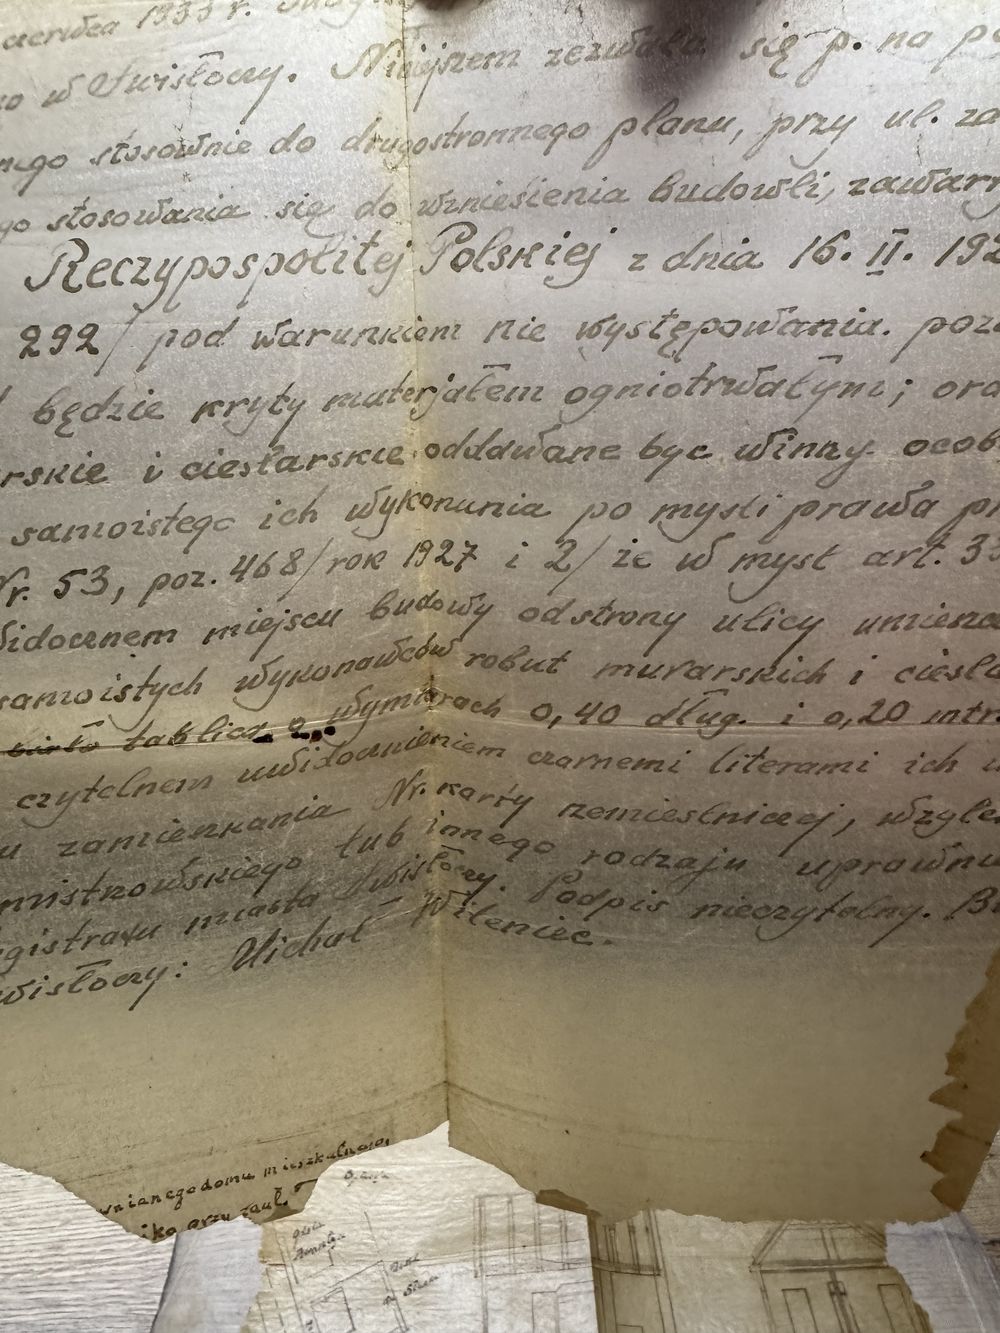 czerwca 1933 r.
w Świsłoczy. Niniejszem zezwala się p. na po
nego stosownie do drugostronnego planu, przy ul. za
go stosowania się do wzniesienia budowli, zawar
Rzeczypospolitej Polskiej z dnia 16. II. 192
292/ pod warunkiem nie występowania. poz
będzie kryty materjałem ogniotrwałym; ora
rskie i ciesłarskie oddawane być winny osob
samoistego ich wykonunia po myśli prawa pr
Nr. 53, poz. 468/rok 1927 i 2/ że w myśl art. 33
widocznem miejscu budowy od strony ulicy umieszc
samoistych wykonawców robut murarskich i ciesla
tablica o wymiarach 0,40 dług. i 0,20 mtr
czytelnem uwidocznieniem czarnemi literami ich
u zamieszkania Nr. karty rzemieslniczej, wzgle
mistrzowskiego lub innego rodzaju uprawn
gistratu miasta Świsłoczy. Podpis nieczytelny. B
wisłoczy: Michał Wileniec.
wnianego domu mieszkalnego,
ika przy zauł.